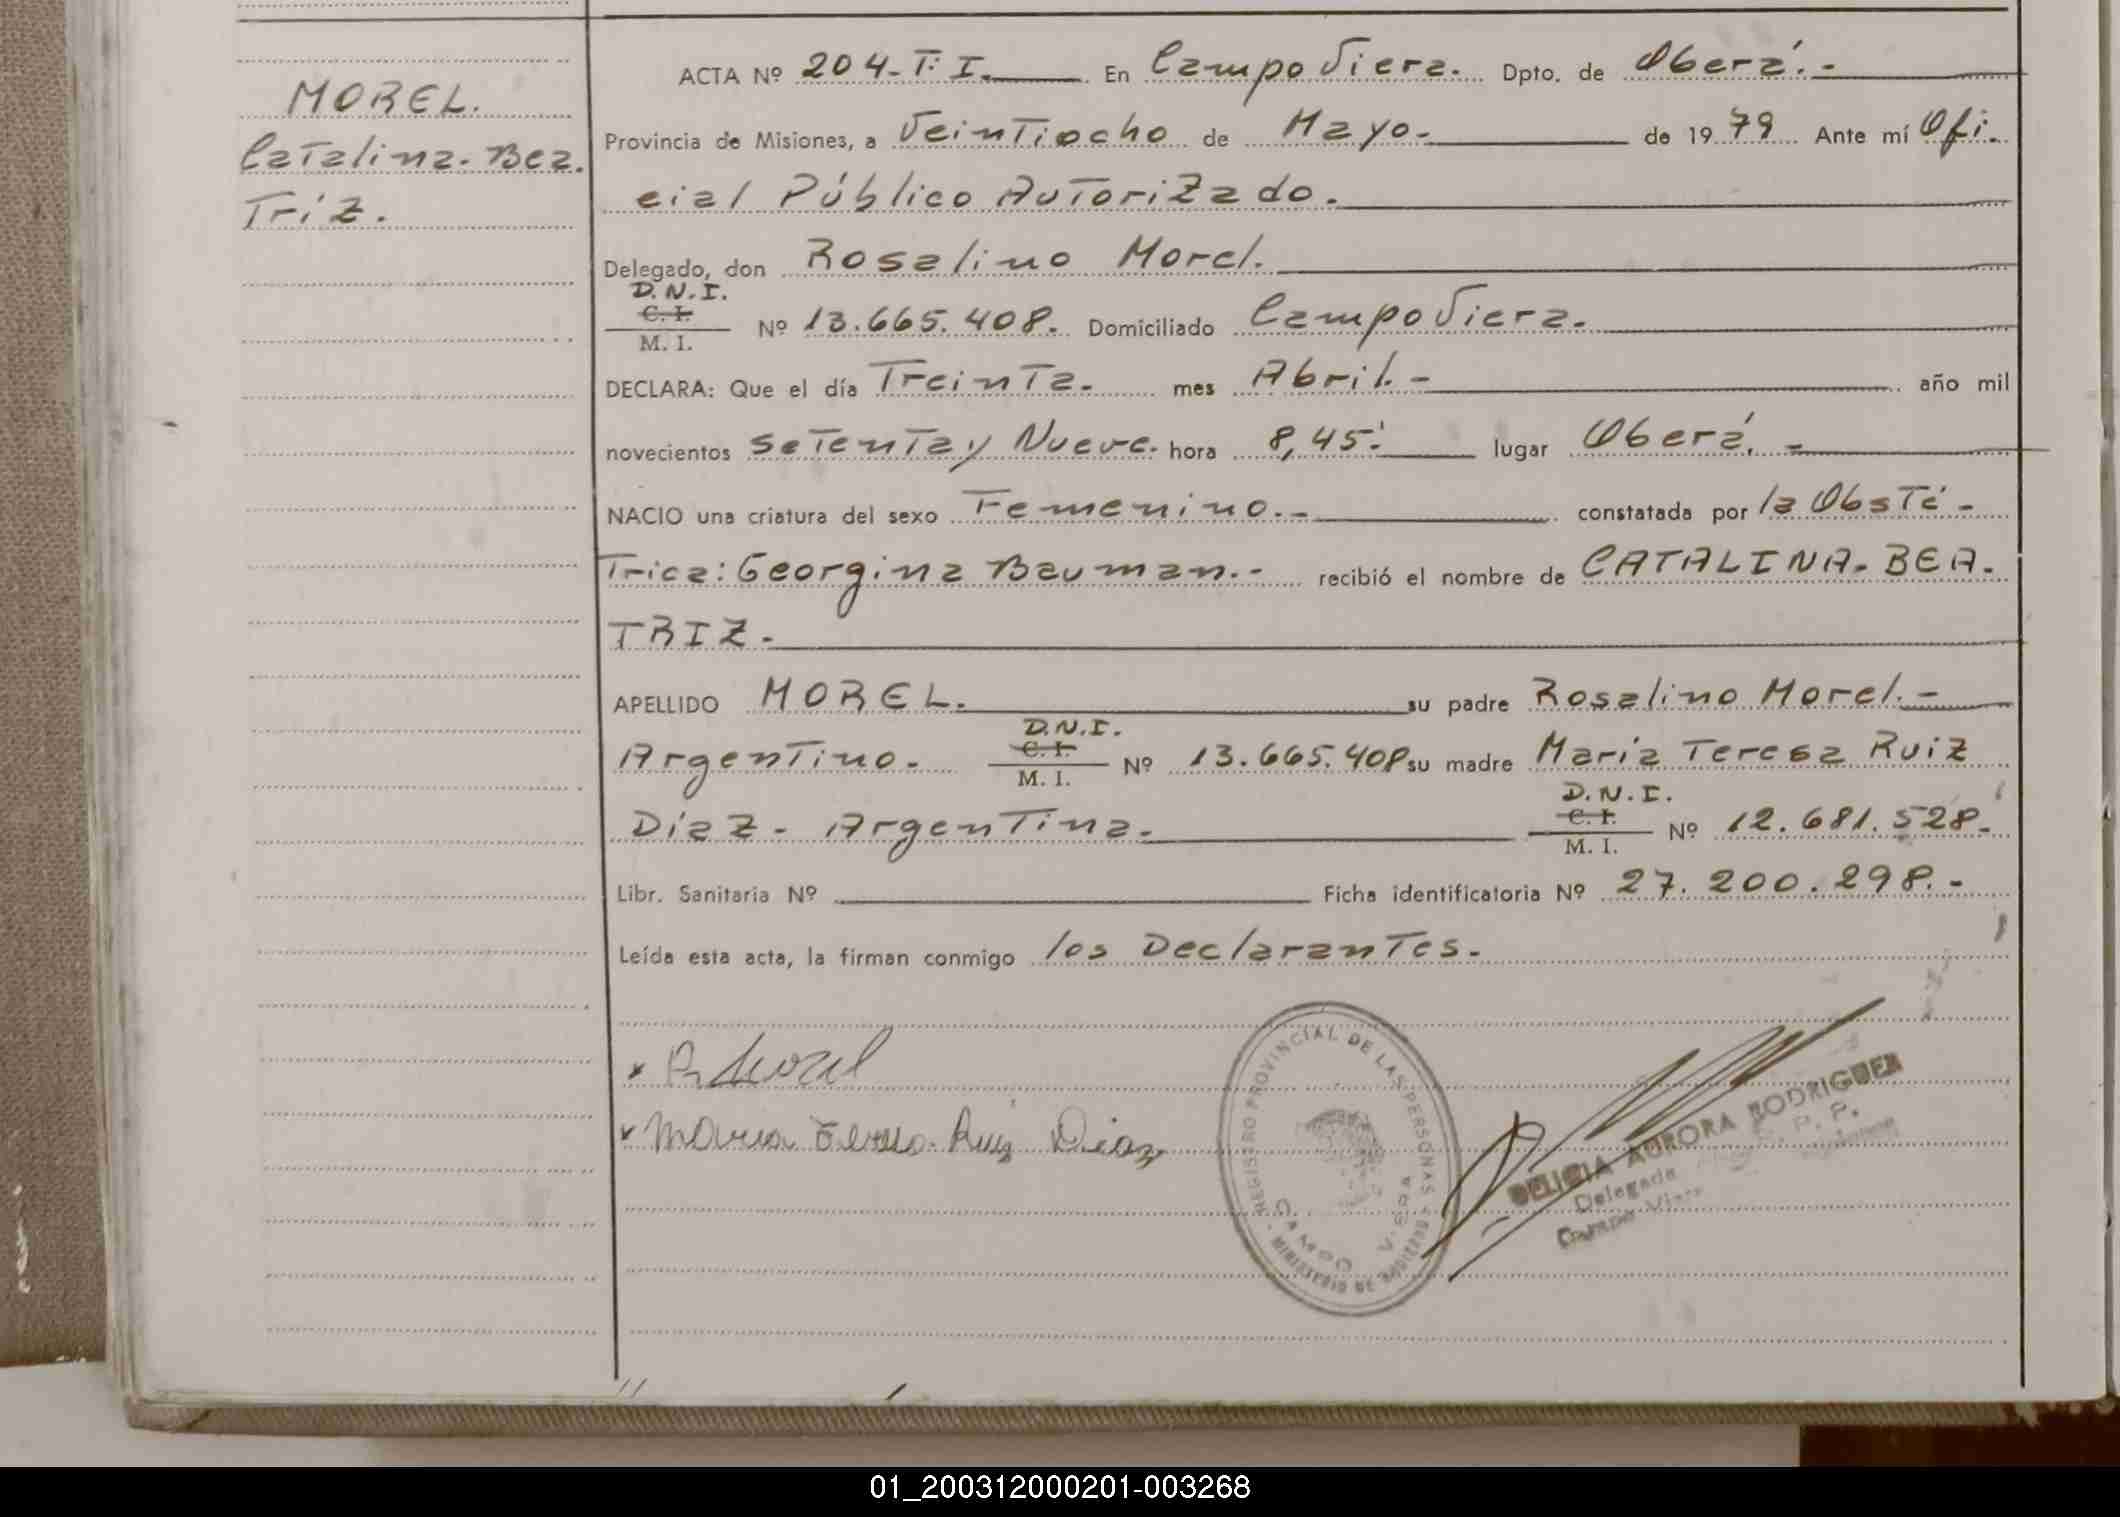 MOREL.
Catalina-Bea.
Triz.
ACTA Nº 204-T: I. En Campo Viera. Dpto. de Oberá.-
Provincia de Misiones, a Veintiocho de Mayo.- de 1979 Ante mí Ofi-
cial Público Autorizado.
Delegado, don Rosalino Morel.
D.N.I.
C. I.
M. I.
Nº 13.665.408. Domiciliado Campo Viera.
DECLARA: Que el día Treinta. mes Abril.- año mil
novecientos Setenta y Nueve. hora 8,45. lugar Oberá.-
NACIO una criatura del sexo Femenino.- constatada por la Obsté-
trica: Georgina Bauman.- recibió el nombre de CATALINA-BEA-
TRIZ.
APELLIDO MOREL. su padre Rosalino Morel.-
Argentino.
D.N.I.
C. I.
M. I.
Nº 13.665.408 su madre María Teresa Ruiz
Diaz- Argentina.
D.N.I.
C. I.
M. I.
Nº 12.681.528.
Libr. Sanitaria Nº Ficha identificatoria Nº 27.200.298.-
Leída esta acta, la firman conmigo los Declarantes.
R. Morel
Maria Teresa Ruiz Diaz
REGISTRO PROVINCIAL DE LAS PERSONAS
MINISTERIO DE
CAMPO VIERA
DELICIA AURORA RODRIGUEZ
Delegada
Campo Viera
01_200312000201-003268